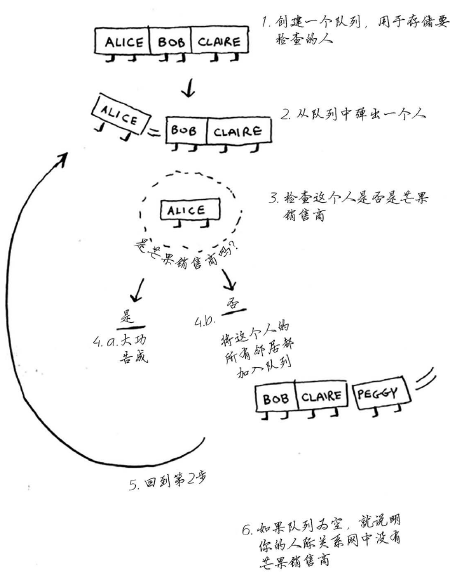 ALICE BOB CLAIRE
1. 创建一个队列，用于存储要
检查的人
ALICE
BOB CLAIRE
2. 从队列中弹出一个人
3. 检查这个人是否是芒果
销售商
ALICE
是芒果销售商吗？
是
4.a. 大功
告成
否
4.b.
将这个人的
所有邻居都
加入队列
BOB CLAIRE PEGGY
5. 回到第2步
6. 如果队列为空，就说明
你的人际关系网中没有
芒果销售商